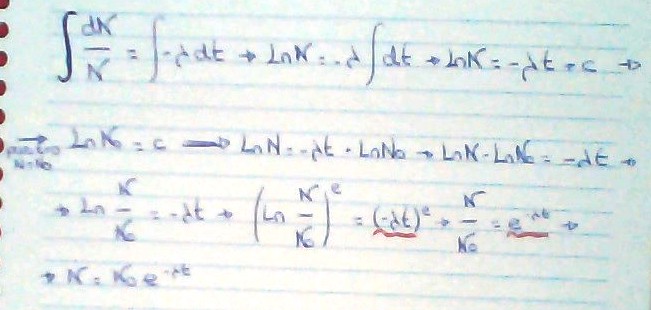 ∫ dN/N = ∫ -λdt → LnN = -λ ∫ dt → LnN = -λt + c →
→ LnN₀ = c → LnN = -λt + LnN₀ → LnN - LnN₀ = -λt →
N=N₀
→ Ln N/N₀ = -λt → (Ln N/N₀)^e = (-λt)^e → N/N₀ = e^-λt →
→ N = N₀ e^-λt